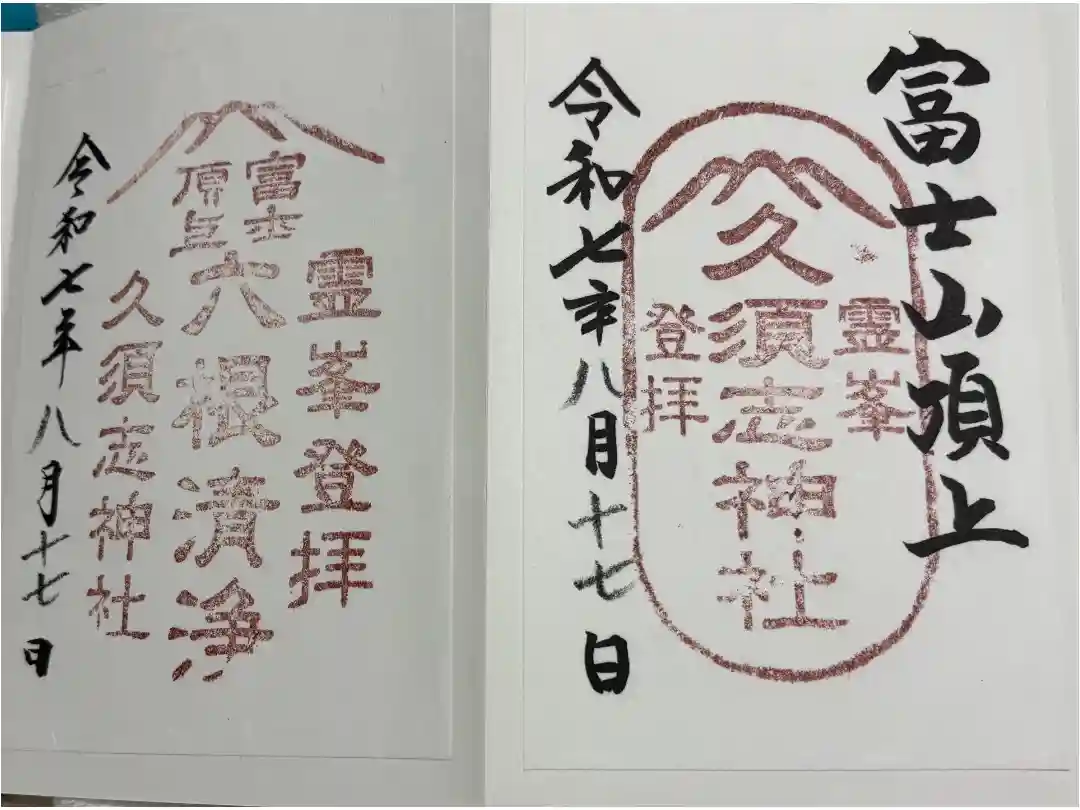 富士山頂上
霊峯
久須志神社
登拝
令和七年八月十七日
霊峯登拝
富士
六根清浄
久須志神社
令和七年八月十七日